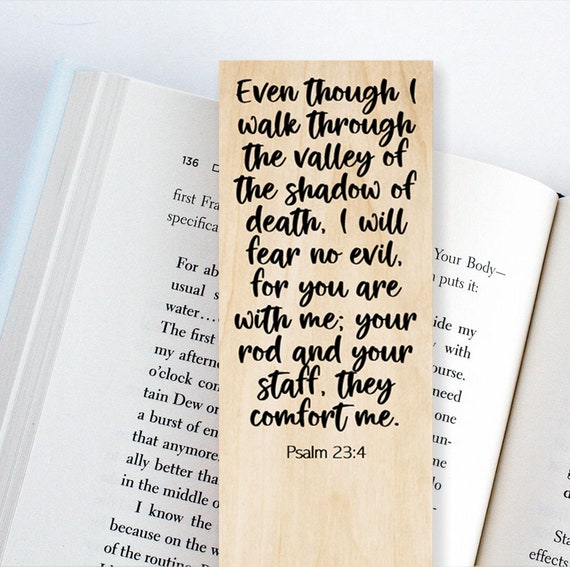 Even though I
walk through
the valley of
the shadow of
death, I will
fear no evil,
for you are
with me; your
rod and your
staff, they
comfort me.
Psalm 23:4
136
first Fra
specifica
For ab
usual s
water…
The first
my afterno
o'clock con
tain Dew or
a burst of en
that anymore
ally better tha
in the middle o
I know the
because on the w
of the routine. B
Your Body—
puts it:
ide my
with
ourse.
one
un-
em-